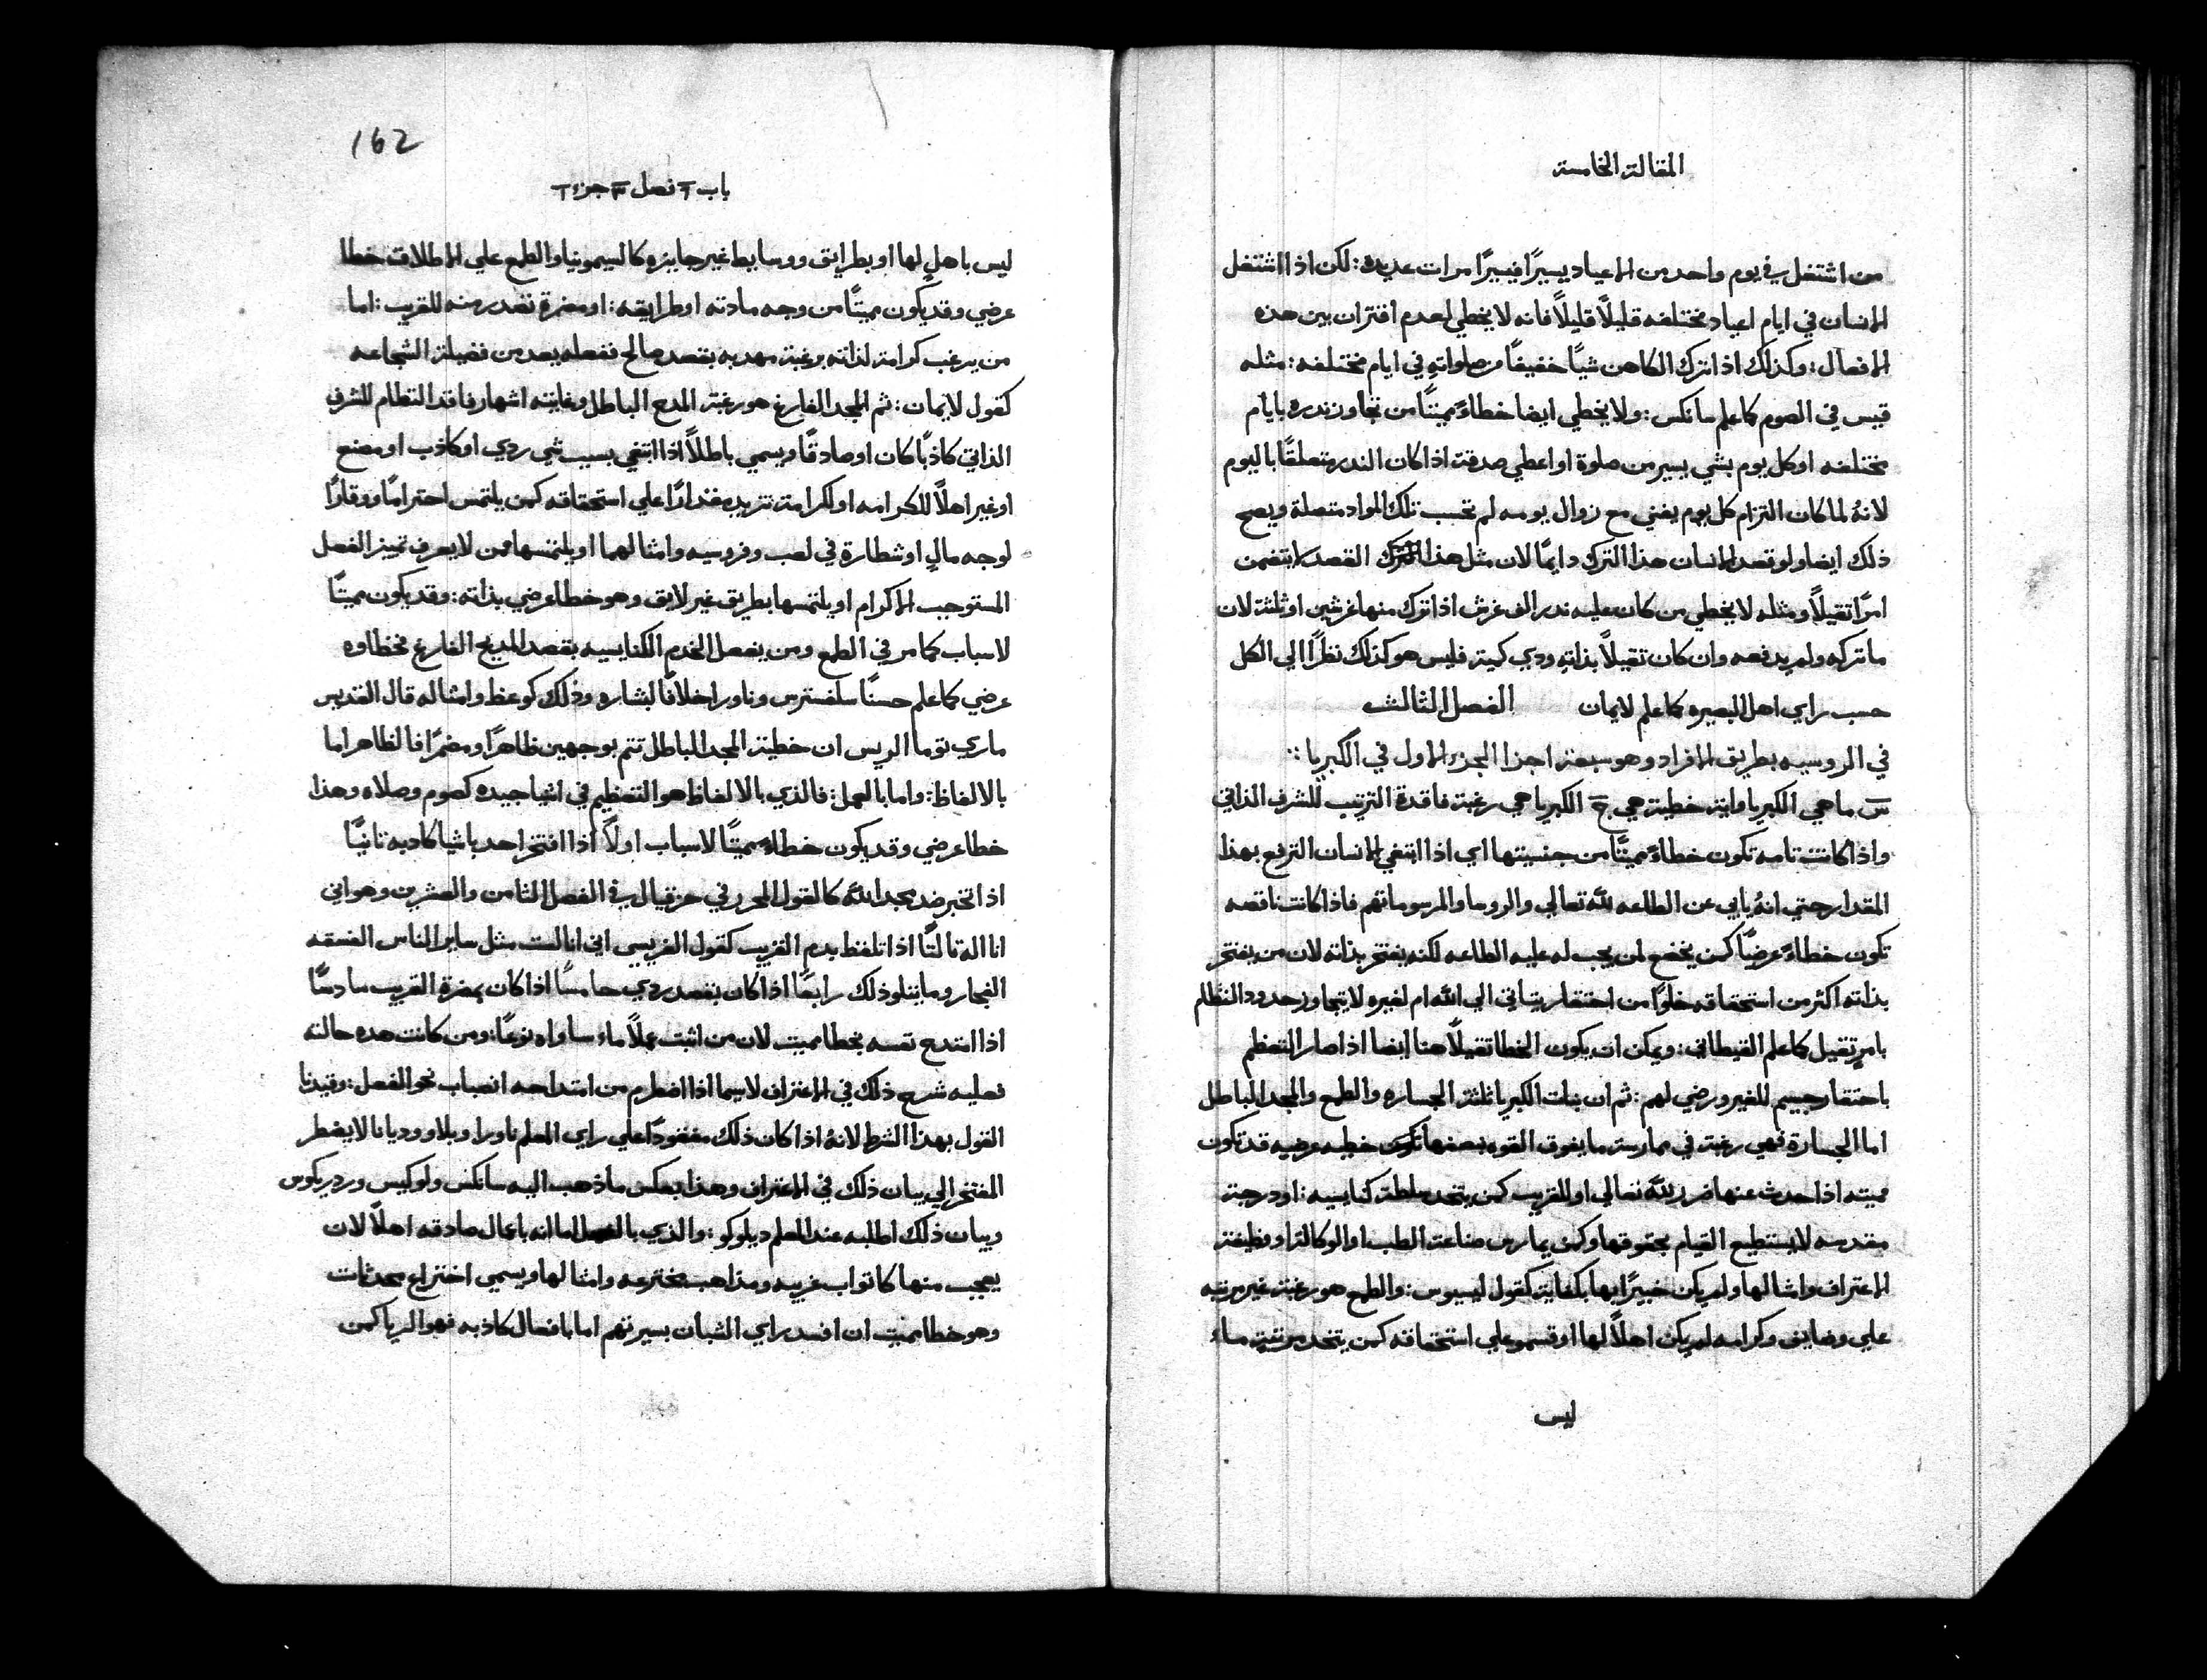 المقالة الخامسة
من اشتغل في يوم واحد من الاعياد يسيرًا فيسيرًا مرات عديده: لكن اذا اشتغل
الانسان في ايام اعياد مختلفه قليلًا قليلًا فانه لا يخطي لعدم اقتران بين هذه
الافعال: وكذلك اذا ترك الكاهن شيًا خفيفًا من صلواته في ايام مختلفه: مثله
قيس في الصوم كما علم سانكس: ولا يخطي ايضا خطاءً مميتًا من تجاوز نذره بايام
مختلفه او كل يوم بشي يسير من صلوة او اعطي صدقة اذا كان النذر متعلقًا باليوم
لانهُ لما كان التزام كل يوم يفني مع زوال يومه لم تحسب تلك المواد متصلة ويصح
ذلك ايضا ولو قصد الانسان هذا الترك دايمًا لان مثل هذا القصد لا يتضمن
امرًا ثقيلًا ومثله لا يخطي من كان عليه نذر الف غرش اذا ترك منها غرشين او ثلثة لان
ما تركه ولم يدفعه وان كان ثقيلًا بذاته وذي كمية فليس هو كذلك نظرًا الي الكل
حسب راي اهل البصيره كما علم لايمان الفصل الثالث
في الروسيه بطريق الافراد وهو سبعة اجزا الجزء الاول في الكبريا:
س ما هي الكبريا واية خطية هي ج الكبريا هي رغبة فاقدة الترتيب للشرف الذاتي
واذا كانت تامه تكون خطاءً مميتًا من جنسيتها اي اذا ابتغي الانسان الترفع بهذا
المقدار حتي انهُ يابي عن الطاعه لله تعالي والروسا والمرسوماتهم فاذا كانت ناقصه
تكون خطاءً عرضيًا كمن يخضع لمن يجب له عليه الطاعه لكنه يفتخر بذاته لان من يفتخر
بذاته اكثر من استحقاقه خلوًا من احتقار يتاتي الي الله ام لغيره لا يتجاوز حدود النظام
بامر ثقيل كما علم القيطاني: ويمكن ان يكون الخطا ثقيلًا هنا ايضا اذا صار التعظم
باحتقار جسيم للغير ورضي لهم: ثم ان بنات الكبريا ثلثة الجساره والطمع والمجد الباطل
اما الجسارة فهي رغبة في ممارسة ما يفوق القوه بعضها تكون خطيه عرضيه قد تكون
مميته اذا حدث عنها ضرر لله تعالي او للقريب كمن يتخد سلطة كنايسيه: او درجة
مقدسه لا يستطيع القيام بحقوقها وكمن يمارس صناعة الطب او الوكالة او وظيفة
الاعتراف وامثالها ولم يكن خبيرًا بها بكفاية كقول ليسيوس: والطمع هو رغبة غير مرتبه
علي وضايف وكرامه لم يكن اهلًا لها او قسمو علي استحقاقه كمن يتخد مرتبة ماء
ليس
162
باب فصل جزء
ليس باهلٍ لها او بطرايق ووسايط غير جايزه كالسيمونيا والطمع علي الاطلاق خطا
عرضي وقد يكون مميتًا من وجه مادته او طرايقه: او مضرة تصدر منه للقريب: اما
من يرغب كرامة لذاته برغبة مهدبه بقصد صالح ففعله يعد من فضيلة الشجاعه
كقول لايمان: ثم المجد الفارغ هو رغبة المدح الباطل وغايته اشهار فاقد النظام للشرف
الذاتي كاذبًا كان او صادقًا ويسمي باطلًا اذا ابتغي بسبب شي ردي او كاذب او مضنع
او غير اهلًا للكرامه او لكرامة تزيده مقدارًا علي استحقاقه كمن يلتمس احترامًا ووقارًا
لوجه مالٍ او شطارة في لعب وفروسيه وامثالهما او يلتمسها ممن لا يعرف تميز الفعل
المستوجب الاكرام او يلتمسها بطريق غير لايق وهو خطا عرضي بذاته: وقد يكون مميتًا
لاسباب كما مر في الطمع ومن يفعل الخدم الكنايسيه بقصد المديح الفارغ فخطاوه
عرضي كما علم حسنًا سلفسترس وناورا خلافًا لبشاره وذلك كوعظ وامثاله قال القديس
ماري توما الريس ان خطية المجد الباطل تتم بوجهين ظاهرًا ومضمرًا فالظاهر اما
بالالفاظ: واما بالعمل: فالذي بالالفاظ هو التعظيم في اشيا جيده كصوم وصلاه وهذا
خطا عرضي وقد يكون خطاءً مميتًا لاسباب اولًا اذا افتخر احد باشيا كادبه ثانيًا
اذا تجبر ضد مجد الله كالقول المحرر في حزقيال في الفصل الثامن والعشرين وهو اني
انا اله ثالثًا اذا تلفظ بدم القريب كقول الفريسي اني انا لست مثل ساير الناس الفسقه
الفجار وما يتلو ذلك رابعًا اذا كان بقصد ردي خامسًا اذا كان بمضرة القريب سادسًا
اذا امتدح نفسه بخطا مميت لان من اثبت عملًا ماء ساواه نوعًا: ومن كانت هذه حالته
فعليه شرح ذلك في الاعتراف لاسيما اذا اضطرم من امتداحه انصباب نحو الفعل: وقيدنا
القول بهذا الشرط لانهُ اذا كان ذلك مفقودًا علي راي المعلم ناورا وبلاو وديانا لا يضطر
المفتخر الي بيان ذلك في الاعتراف وهذا بعكس ما ذهب اليه سانكس ولوكيس وردريكوس
وبيان ذلك اطلبه عند المعلم ديلوكو: والذي بالعمل اما انه باعمال صادقه اهلًا لان
يعجب منها كاثواب غريبه ومذاهب مخترعه وامثالها ويسمي اختراع محدثات
وهو خطا مميت ان افسد راي الشبان بسيرتهم اما بافعال كاذبه فهو الريا كمن